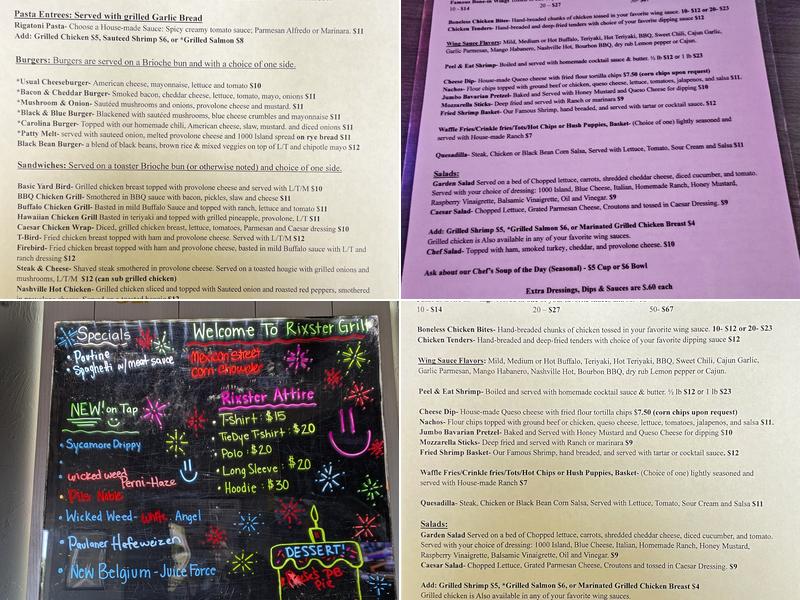 Pasta Entrees: Served with grilled Garlic Bread
Rigatoni Pasta- Choose a House-made Sauce: Spicy creamy tomato sauce; Parmesan Alfredo or Marinara. $11
Add: Grilled Chicken $5, Sauteed Shrimp $6, or *Grilled Salmon $8
Burgers: Burgers are served on a Brioche bun and with a choice of one side.
*Usual Cheeseburger- American cheese, mayonnaise, lettuce and tomato $10
*Bacon & Cheddar Burger- Smoked bacon, cheddar cheese, lettuce, tomato, mayo, onions $11
*Mushroom & Onion- Sautéed mushrooms and onions, provolone cheese and mustard. $11
*Black & Blue Burger- Blackened with sautéed mushrooms, blue cheese crumbles and mayonnaise $11
*Carolina Burger- Topped with our homemade chili, American cheese, slaw, mustard. and diced onions $11
*Patty Melt- served with sauteed onion, melted provolone cheese and 1000 Island spread on rye bread $11
Black Bean Burger- a blend of black beans, brown rice & mixed veggies on top of L/T and chipotle mayo $12
Sandwiches: Served on a toaster Brioche bun (or otherwise noted) and choice of one side.
Basic Yard Bird- Grilled chicken breast topped with provolone cheese and served with L/T/M $10
BBQ Chicken Grill- Smothered in BBQ sauce with bacon, pickles, slaw and cheese $11
Buffalo Chicken Grill- Basted in mild Buffalo Sauce and topped with ranch, lettuce and tomato $11
Hawaiian Chicken Grill Basted in teriyaki and topped with grilled pineapple, provolone, L/T $11
Caesar Chicken Wrap- Diced, grilled chicken breast, lettuce, tomatoes, Parmesan and Caesar dressing $10
T-Bird- Fried chicken breast topped with ham and provolone cheese. Served with L/T/M $12
Firebird- Fried chicken breast topped with ham and provolone cheese, basted in mild Buffalo sauce with L/T and
ranch dressing $12
Steak & Cheese- Shaved steak smothered in provolone cheese. Served on a toasted hoagie with grilled onions and
mushrooms, L/T/M $12 (can sub grilled chicken)
Nashville Hot Chicken- Grilled chicken sliced and topped with Sauteed onion and roasted red peppers, smothered
20 - $27
Boneless Chicken Bites- Hand-breaded chunks of chicken tossed in your favorite wing sauce. 10- $12 or 20- $23
Chicken Tenders- Hand-breaded and deep-fried tenders with choice of your favorite dipping sauce $12
Wing Sauce Flavors: Mild, Medium or Hot Buffalo, Teriyaki, Hot Teriyaki, BBQ, Sweet Chili, Cajun Garlic,
Garlic Parmesan, Mango Habanero, Nashville Hot, Bourbon BBQ, dry rub Lemon pepper or Cajun.
Peel & Eat Shrimp- Boiled and served with homemade cocktail sauce & butter. ½ lb $12 or 1 lb $23
Cheese Dip- House-made Queso cheese with fried flour tortilla chips $7.50 (corn chips upon request)
Nachos- Flour chips topped with ground beef or chicken, queso cheese, lettuce, tomatoes, jalapenos, and salsa $11.
Jumbo Bavarian Pretzel- Baked and Served with Honey Mustard and Queso Cheese for dipping $10
Mozzarella Sticks- Deep fried and served with Ranch or marinara $9
Fried Shrimp Basket- Our Famous Shrimp, hand breaded, and served with tartar or cocktail sauce. $12
Waffle Fries/Crinkle fries/Tots/Hot Chips or Hush Puppies, Basket- (Choice of one) lightly seasoned and
served with House-made Ranch $7
Quesadilla- Steak, Chicken or Black Bean Corn Salsa, Served with Lettuce, Tomato, Sour Cream and Salsa $11
Salads:
Garden Salad Served on a bed of Chopped lettuce, carrots, shredded cheddar cheese, diced cucumber, and tomato.
Served with your choice of dressing: 1000 Island, Blue Cheese, Italian, Homemade Ranch, Honey Mustard,
Raspberry Vinaigrette, Balsamic Vinaigrette, Oil and Vinegar. $9
Caesar Salad- Chopped Lettuce, Grated Parmesan Cheese, Croutons and tossed in Caesar Dressing. $9
Add: Grilled Shrimp $5, *Grilled Salmon $6, or Marinated Grilled Chicken Breast $4
Grilled chicken is Also available in any of your favorite wing sauces.
Chef Salad- Topped with ham, smoked turkey, cheddar, and provolone cheese. $10
Ask about our Chef's Soup of the Day (Seasonal) - $5 Cup or $6 Bowl
Extra Dressings, Dips & Sauces are $.60 each
Specials
• Poutine
• Spaghetti w/meat sauce
Welcome To Rixster Grill
Mexican street
corn chowder
NEW! on Tap
• Sycamore Drippy
• wicked weed
Perni-Haze
• Pils Noble
• Wicked Weed- White Angel
• Paulaner Hefeweizen
• New Belgium - Juice Force
Rixster Attire
• T-Shirt : $15
• TieDye T-shirt : $20
• Polo : $20
• Long Sleeve : $20
• Hoodie : $30
DESSERT!
PB
Pie
10 - $14 20 – $27 50- $67
Boneless Chicken Bites- Hand-breaded chunks of chicken tossed in your favorite wing sauce. 10- $12 or 20- $23
Chicken Tenders- Hand-breaded and deep-fried tenders with choice of your favorite dipping sauce $12
Wing Sauce Flavors: Mild, Medium or Hot Buffalo, Teriyaki, Hot Teriyaki, BBQ, Sweet Chili, Cajun Garlic,
Garlic Parmesan, Mango Habanero, Nashville Hot, Bourbon BBQ, dry rub Lemon pepper or Cajun.
Peel & Eat Shrimp- Boiled and served with homemade cocktail sauce & butter. ½ lb $12 or 1 lb $23
Cheese Dip- House-made Queso cheese with fried flour tortilla chips $7.50 (corn chips upon request)
Nachos- Flour chips topped with ground beef or chicken, queso cheese, lettuce, tomatoes, jalapenos, and salsa $11.
Jumbo Bavarian Pretzel- Baked and Served with Honey Mustard and Queso Cheese for dipping $10
Mozzarella Sticks- Deep fried and served with Ranch or marinara $9
Fried Shrimp Basket- Our Famous Shrimp, hand breaded, and served with tartar or cocktail sauce. $12
Waffle Fries/Crinkle fries/Tots/Hot Chips or Hush Puppies, Basket- (Choice of one) lightly seasoned and
served with House-made Ranch $7
Quesadilla- Steak, Chicken or Black Bean Corn Salsa, Served with Lettuce, Tomato, Sour Cream and Salsa $11
Salads:
Garden Salad Served on a bed of Chopped lettuce, carrots, shredded cheddar cheese, diced cucumber, and tomato.
Served with your choice of dressing: 1000 Island, Blue Cheese, Italian, Homemade Ranch, Honey Mustard,
Raspberry Vinaigrette, Balsamic Vinaigrette, Oil and Vinegar. $9
Caesar Salad- Chopped Lettuce, Grated Parmesan Cheese, Croutons and tossed in Caesar Dressing. $9
Add: Grilled Shrimp $5, *Grilled Salmon $6, or Marinated Grilled Chicken Breast $4
Grilled chicken is Also available in any of your favorite wing sauces.